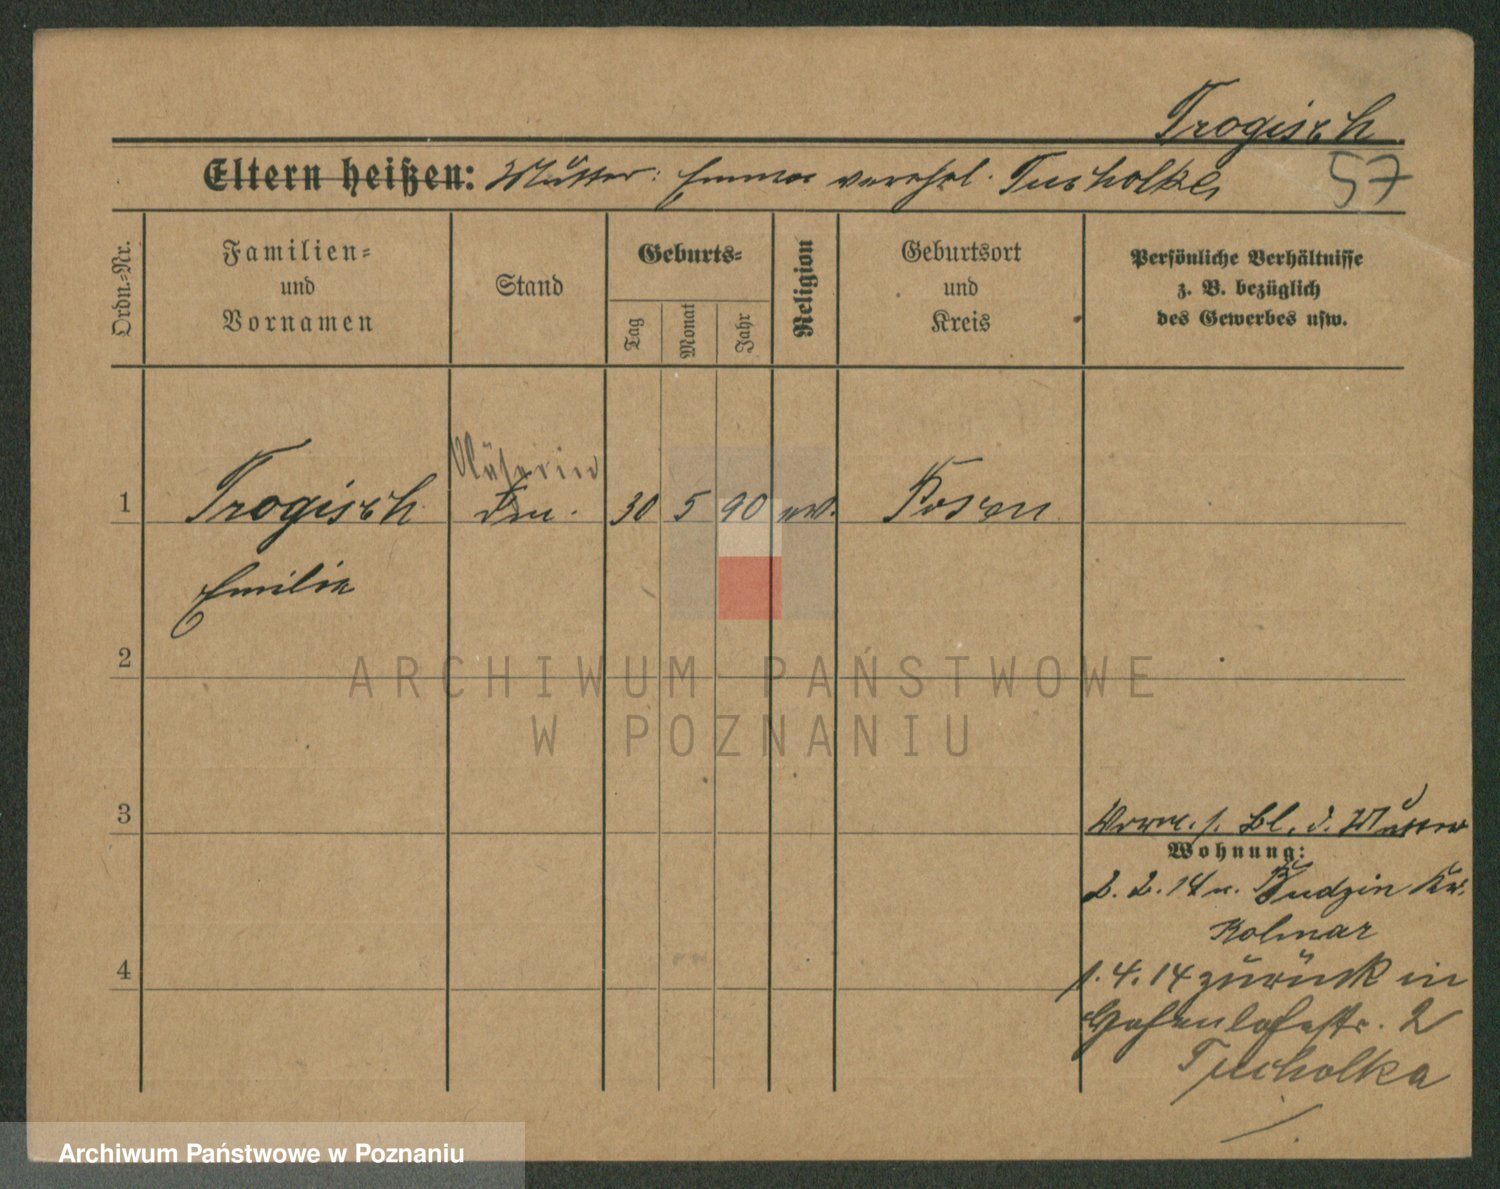 Trogisch.
Eltern heißen: Mutter: Emma verehel. Tucholka
57
Ordn.-Nr.
Familien-
und
Vornamen
Stand
Geburts-
Tag
Monat
Jahr
Religion
Geburtsort
und
Kreis
Persönliche Verhältnisse
z. B. bezüglich
des Gewerbes usw.
Näherin
1 Trogisch 30 5 90 ev. Posen
Emilie
2
3
4
Vorm. s. Bl. d. Mutter
Wohnung:
2. 2. 14 n. Budzin Kr.
Kolmar
1. 4. 14 zurück in
Hohenlohestr. 2
Tucholka
ARCHIWUM PAŃSTWOWE
W POZNANIU
Archiwum Państwowe w Poznaniu